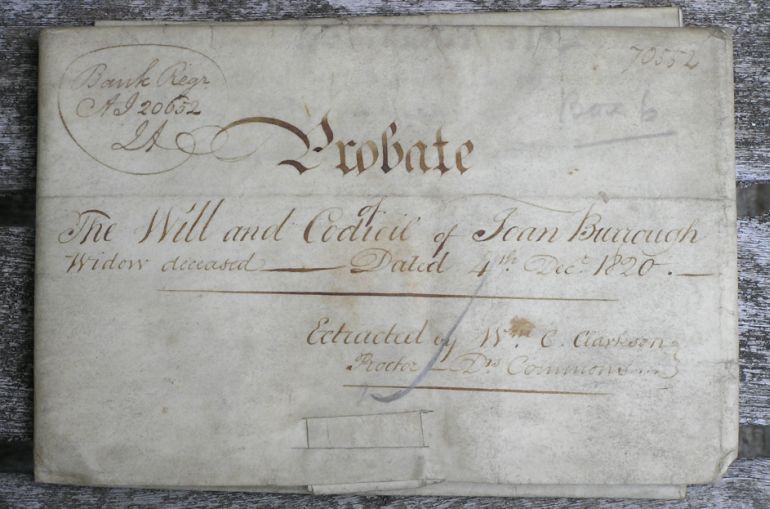 Bank Regr
A I 20652
70552
Box 6
Probate
of
The Will and Codicil of Jean Burrough
Widow deceased — Dated 4th. Decr. 1820. —
Extracted by Wm. C. Clarkson
Proctor — Drs Commons